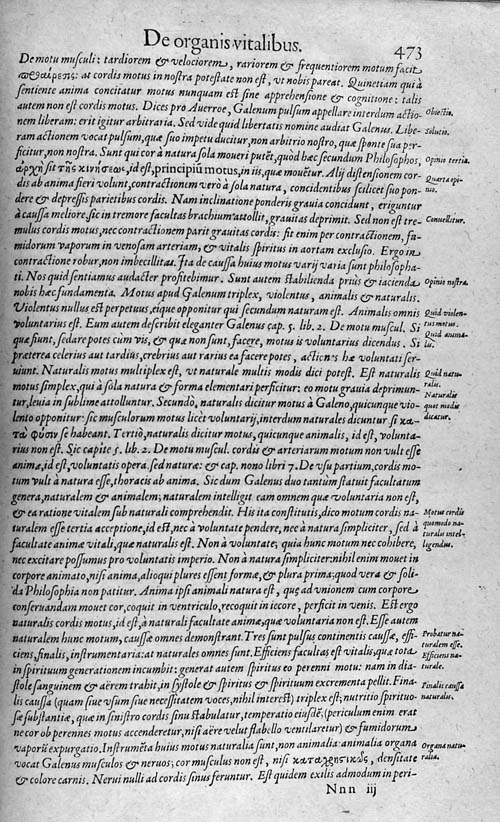 De organis vitalibus.
473
De motu musculi: tardiorem & velociorem, rariorem & frequentiorem motum facit
προαίρεσις: at cordis motus in nostra potestate non est, vt nobis pareat. Quinetiam qui à
sentiente anima concitatur motus nunquam est sine apprehensione & cognitione: talis
autem non est cordis motus. Dices pro Auerroe, Galenum pulsum appellare interdum actio-
nem liberam: erit igitur arbitraria. Sed vide quid libertatis nomine audiat Galenus. Libe-
ram actionem vocat pulsum, quæ suo impetu ducitur, non arbitrio nostro, quæ sponte sua per-
ficitur, non nostra. Sunt qui cor à natura sola moueri putēt, quòd hæc secundum Philosophos,
ἀρχὴ sit τῆς κινήσεως, id est, principiū motus, in iis, quæ mouētur. Alij distensionem cor-
dis ab anima fieri volunt, contractionem verò à sola natura, concidentibus scilicet suo pon-
dere & depressis parietibus cordis. Nam inclinatione ponderis grauia concidunt, eriguntur
à caussa meliore, sic in tremore facultas brachium attollit, grauitas deprimit. Sed non est tre-
mulus cordis motus, nec contractionem parit grauitas cordis: fit enim per contractionem, fu-
midorum vaporum in venosam arteriam, & vitalis spiritus in aortam exclusio. Ergo in
contractione robur, non imbecillitas. Ita de caussa huius motus varij varia sunt philosopha-
ti. Nos quid sentiamus audacter profitebimur. Sunt autem stabilienda priùs & iacienda
nobis hæc fundamenta. Motus apud Galenum triplex, violentus, animalis & naturalis.
Violentus nullus est perpetuus, eique opponitur qui secundum naturam est. Animalis omnis
voluntarius est. Eum autem describit eleganter Galenus cap. 5. lib. 2. De motu muscul. Si
quæ fiunt, sedare potes cùm vis, & quæ non fiunt, facere, motus is voluntarius dicendus. Si
præterea celerius aut tardiùs, crebrius aut rarius ea facere potes, actiones hæ voluntati ser-
uiunt. Naturalis motus multiplex est, vt naturale multis modis dici potest. Est naturalis
motus simplex, qui à sola natura & forma elementari perficitur: eo motu grauia deprimun-
tur, leuia in sublime attolluntur. Secundò, naturalis dicitur motus à Galeno, quicunque vio-
lento opponitur: sic musculorum motus licèt voluntarij, interdum naturales dicuntur si κα-
τὰ φύσιν se habeant. Tertiò, naturalis dicitur motus, quicunque animalis, id est, volunta-
rius non est. Sic capite 5. lib. 2. De motu muscul. cordis & arteriarum motum non vult esse
animæ, id est, voluntatis opera. sed naturæ: & cap. nono libri 7. De vsu partium, cordis mo-
tum vult à natura esse, thoracis ab anima. Sic dum Galenus duo tantum statuit facultatum
genera, naturalem & animalem; naturalem intelligit eam omnem quæ voluntaria non est,
& ea ratione vitalem sub naturali comprehendit. His ita constitutis, dico motum cordis na-
turalem esse tertia acceptione, id est, nec à voluntate pendere, nec à natura simpliciter, sed à
facultate animæ vitali, quæ naturalis est. Non à voluntate; quia hunc motum nec cohibere,
nec excitare possumus pro voluntatis imperio. Non à natura simpliciter: nihil enim mouet in
corpore animato, nisi anima, alioqui plures essent formæ, & plura prima: quod vera & soli-
da Philosophia non patitur. Anima ipsi animali natura est, quę ad vnionem cum corpore
conseruandam mouet cor, coquit in ventriculo, recoquit in iecore, perficit in venis. Est ergo
naturalis cordis motus, id est, à naturali facultate animæ, quæ voluntaria non est. Esse autem
naturalem hunc motum, caussæ omnes demonstrant. Tres sunt pulsus continentis caussæ, effi-
ciens, finalis, instrumentaria: at naturales omnes sunt. Efficiens facultas est vitalis, quæ tota
in spirituum generationem incumbit: generat autem spiritus eo perenni motu: nam in dia-
stole sanguinem & aërem trahit, in systole & spiritus & spirituum excrementa pellit. Fina-
lis caussa (quam siue vsum siue necessitatem voces, nihil interest) triplex est; nutritio spirituo-
sæ substantiæ, quæ in sinistro cordis sinu stabulatur, temperatio eiusdē, (periculum enim erat
ne cor ob perennes motus accenderetur, nisi aëre velut flabello ventilaretur) & fumidorum
vaporū expurgatio. Instrumēta huius motus naturalia sunt, non animalia: animalia organa
vocat Galenus musculos & neruos; cor musculus non est, nisi καταχρηστικῶς, densitate
& colore carnis. Nerui nulli ad cordis sinus feruntur. Est quidem exilis admodum in peri-
Nnn iij
Obiectio.
Solutio.
Opinio tertia.
Quarta opi-
nio.
Conuellitur.
Opinio nostra.
Quid violen-
tus motus.
Quid anima-
lis.
Quid natu-
ralis.
Naturalis
quot modis
dicatur.
Motus cordis
quomodo na-
turalis intel-
ligendus.
Probatur na-
turalem esse.
Efficiens na-
turalis.
Finalis caussa
naturalis.
Organa natu-
ralia.